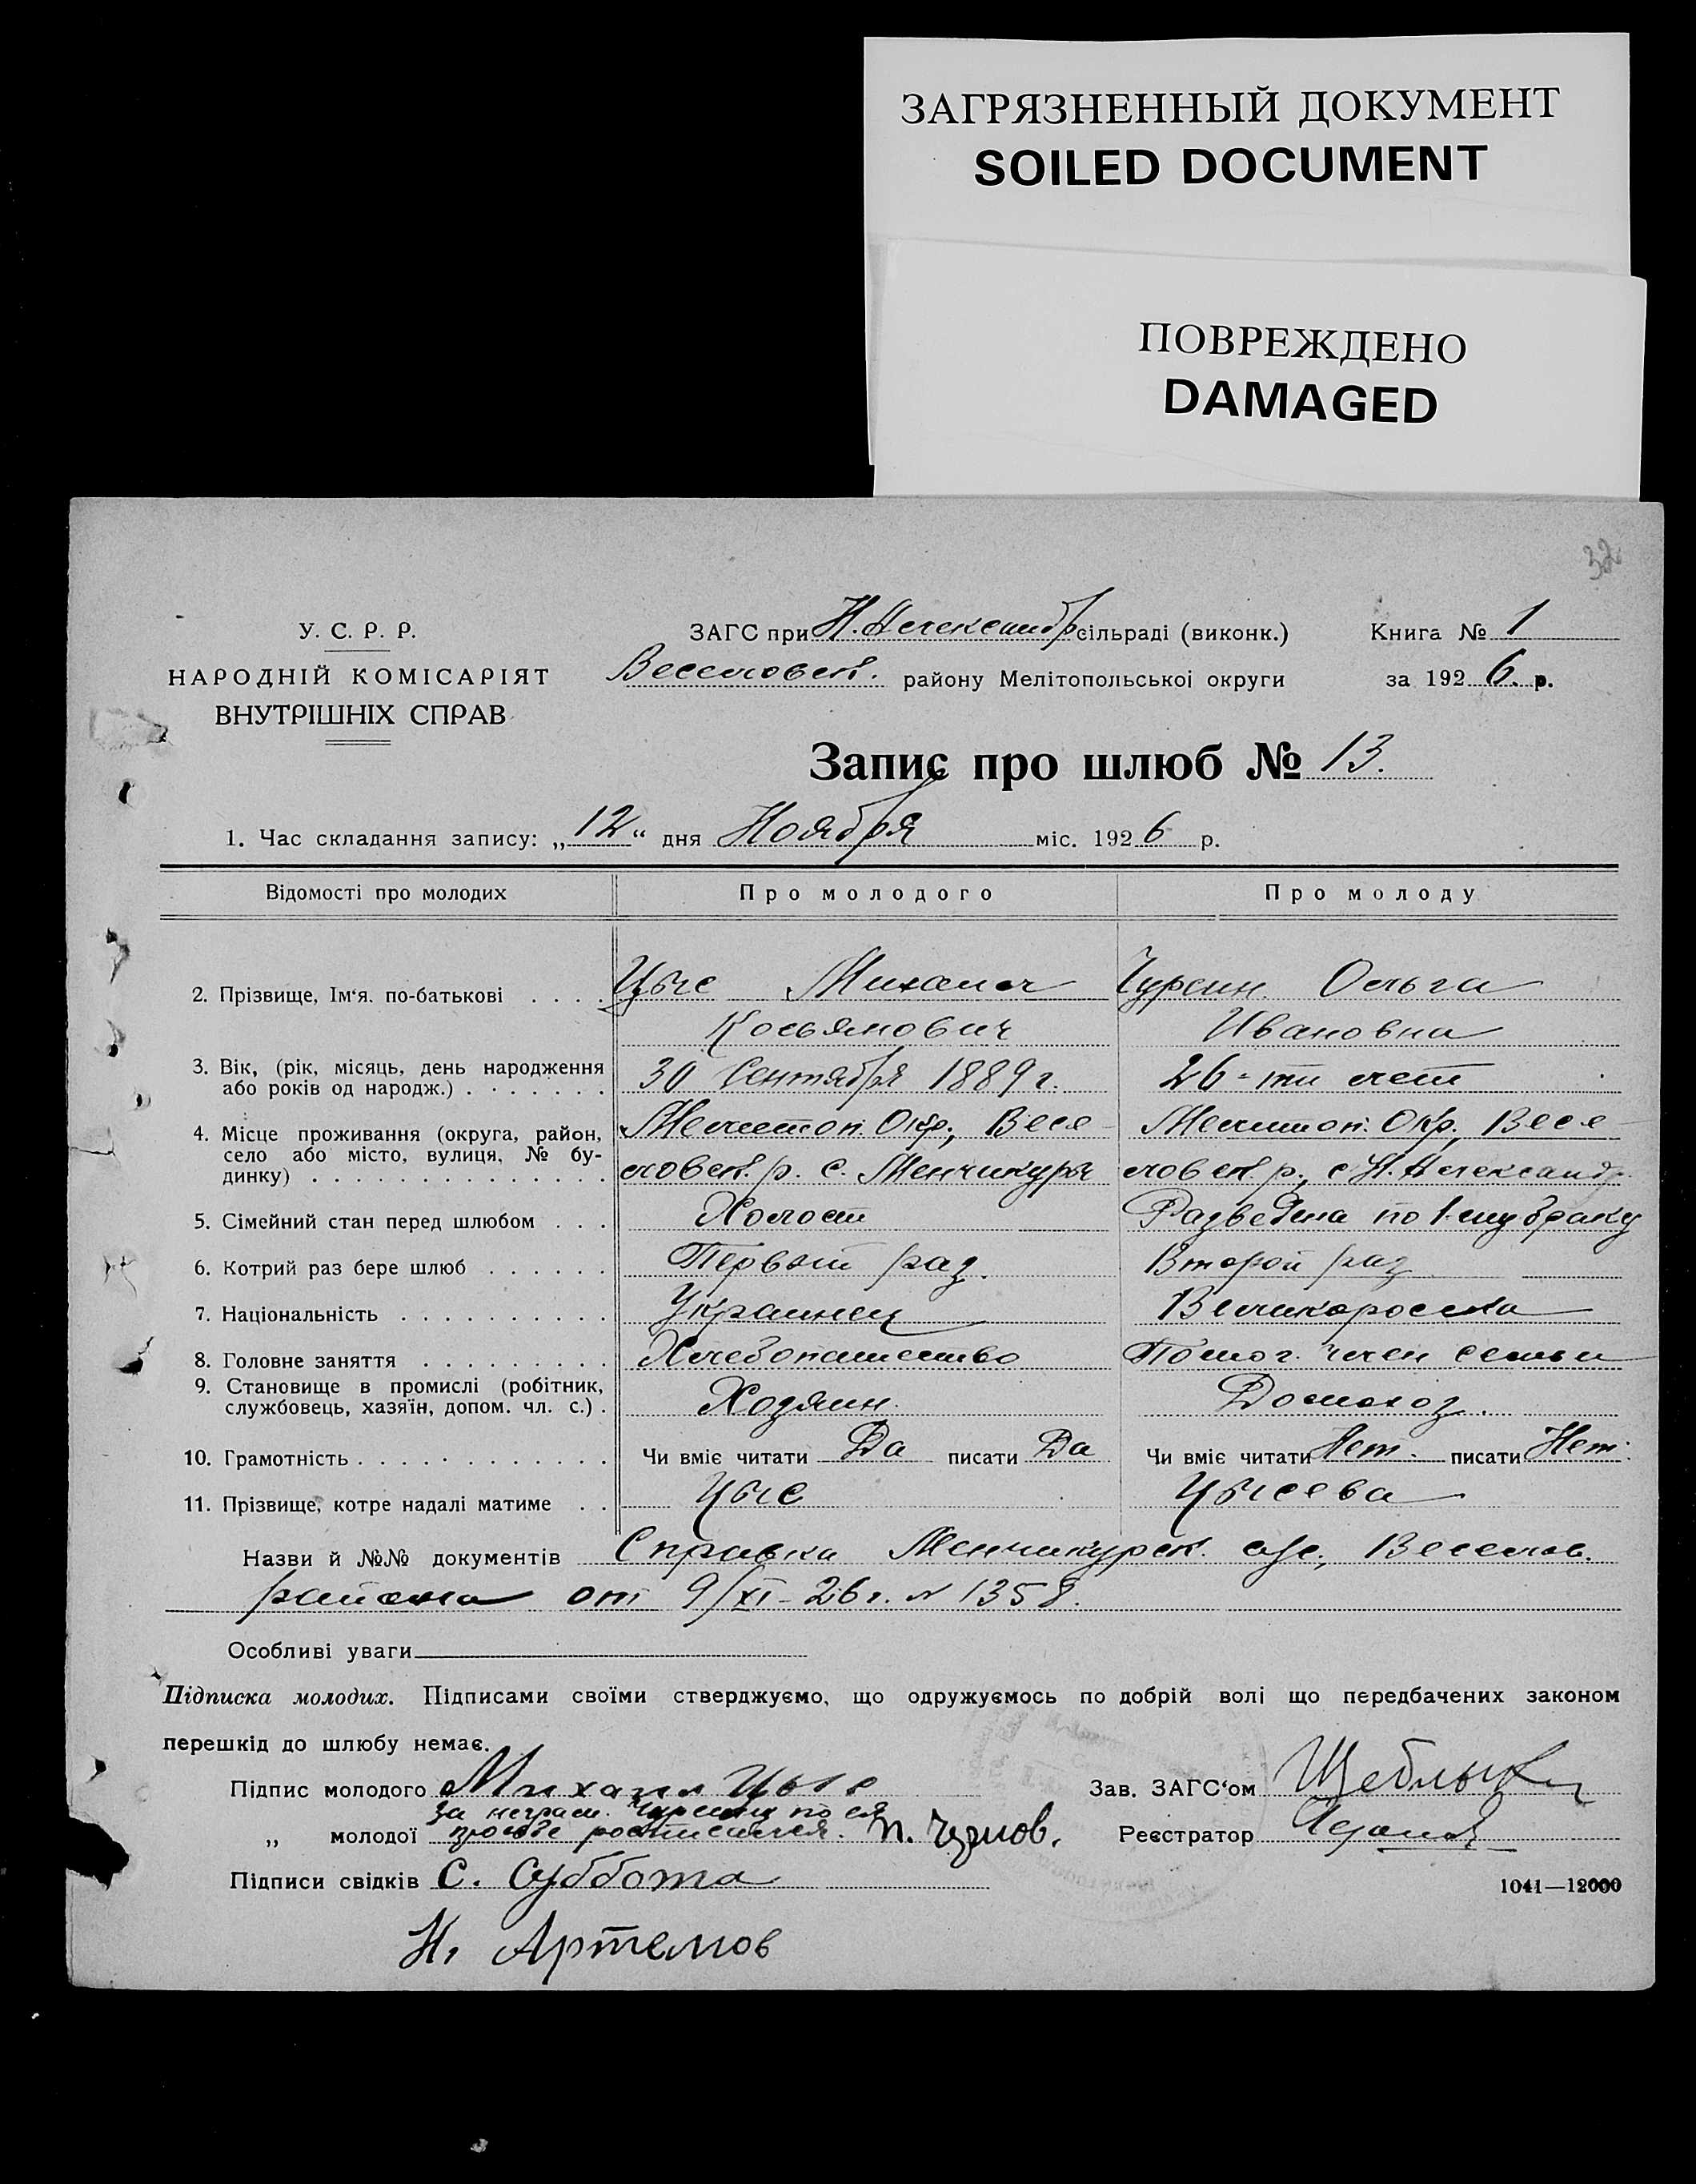 ЗАГРЯЗНЕННЫЙ ДОКУМЕНТ
SOILED DOCUMENT
ПОВРЕЖДЕНО
DAMAGED
32
У. С. Р. Р.
НАРОДНІЙ КОМІСАРІЯТ
ВНУТРІШНІХ СПРАВ
ЗАГС при Н. Александр сільраді (виконк.)
Веселовск. району Мелітопольської округи
Книга № 1
за 1926. р.
Запис про шлюб № 13.
1. Час складання запису: „12“ дня Ноября міс. 1926 р.
Відомості про молодих Про молодого Про молоду
2. Прізвище, Ім‘я. по-батькові . . . . Цыс Михаил Чурсин. Ольга
Косьянович Ивановна
3. Вік, (рік, місяць, день народження
або років од народж.) . . . . . . . 30 Сентября 1889 г. 26-ти лет
4. Місце проживання (округа, район, Мелитоп. Окр., Весе- Мелитоп. Окр., Весе-
село або місто, вулиця, № бу-
динку) . . . . . . . . . . . . . . ловск. р. с. Менчикуры ловск. р., с. Н. Александр.
5. Сімейний стан перед шлюбом . . . Холост Разведена по 1-му браку
6. Котрий раз бере шлюб . . . . . . Первый раз. Второй раз
7. Національність . . . . . . . . . . Украинец Великоросска
8. Головне заняття . . . . . . . . . Хлебопашество Помог. член семьи
9. Становище в промислі (робітник,
службовець, хазяїн, допом. чл. с.) . Хозяин. Домохоз.
10. Грамотність . . . . . . . . . . . . Чи вміє читати Да писати Да Чи вміє читати Нет. писати Нет.
11. Прізвище, котре надалі матиме . . Цыс Цысева
Назви й №№ документів Справка Менчикурск. с/с, Веселов.
района от 9/XI-26 г. № 1358.
Особливі уваги
Підписка молодих. Підписами своїми стверджуємо, що одружуємось по добрій волі що передбачених законом
перешкід до шлюбу немає.
Підпис молодого Михаил Цыс
Зав. ЗАГС‘ом
за неграм. Чурсину по ея
„ молодої прозбе росписался. П. Чурсов.
Реєстратор
Підписи свідків С. Суббота
1041—12000
Н. Артемов